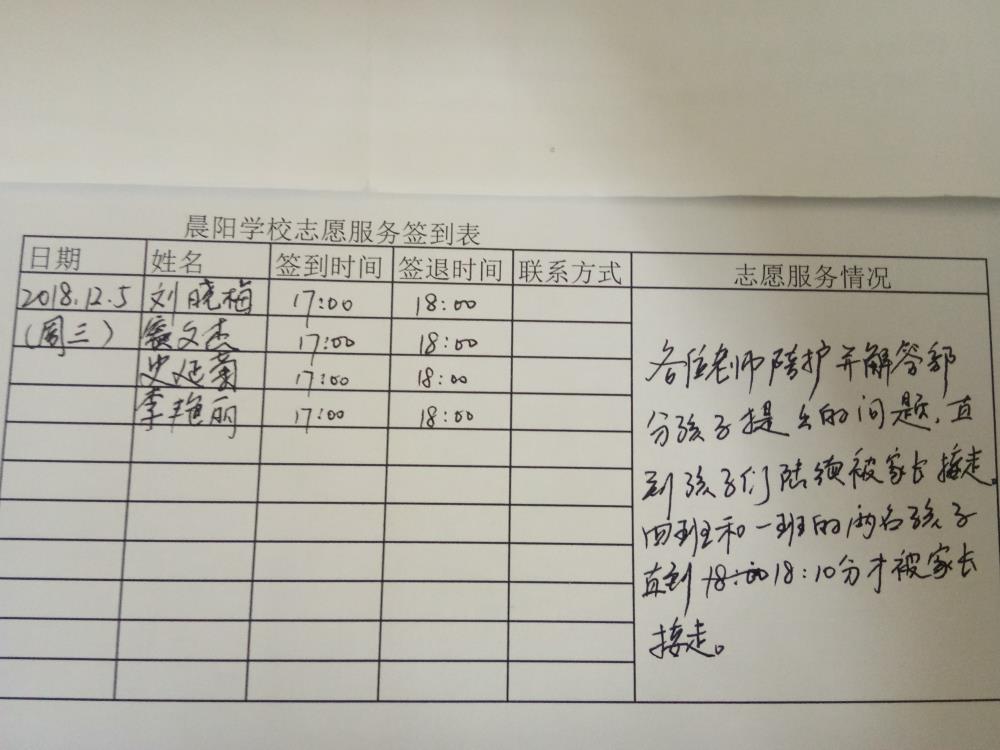 晨阳学校志愿服务签到表
日期 姓名 签到时间 签退时间 联系方式 志愿服务情况
2018.12.5 刘晓梅 17:00 18:00
(周三) 文杰 17:00 18:00
史延菊 17:00 18:00
李艳丽 17:00 18:00
各位老师陪护并解答部
分孩子提出的问题,直
到孩子们陆续被家长接走。
四班和一班的两名孩子
直到 18:00 18:10分才被家长
接走。